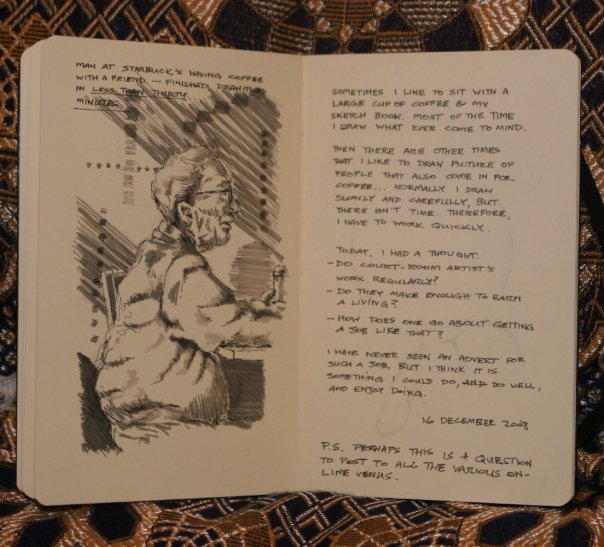 MAN AT STARBUCK'S HAVING COFFEE
WITH A FRIEND — FINISHED DRAWING
IN LESS THAN THIRTY
MINUTES.
SOMETIMES I LIKE TO SIT WITH A
LARGE CUP OF COFFEE & MY
SKETCH BOOK. MOST OF THE TIME
I DRAW WHAT EVER COME TO MIND.
THEN THERE ARE OTHER TIMES
THAT I LIKE TO DRAW PICTURE OF
PEOPLE THAT ALSO COME IN FOR
COFFEE... NORMALLY I DRAW
SLOWLY AND CAREFULLY, BUT
THERE ISN'T TIME. THEREFORE,
I HAVE TO WORK QUICKLY.
TODAY, I HAD A THOUGHT.
- DO COURT-ROOM ARTIST'S
WORK REGULARLY?
- DO THEY MAKE ENOUGH TO EARN
A LIVING?
- HOW DOES ONE GO ABOUT GETTING
A JOB LIKE THAT?
I HAVE NEVER SEEN AN ADVERT FOR
SUCH A JOB, BUT I THINK IT IS
SOMETHING I COULD DO, AND DO WELL,
AND ENJOY DOING.
16 DECEMBER 2008
P.S. PERHAPS THIS IS A QUESTION
TO POST TO ALL THE VARIOUS ON-
LINE VENUS.